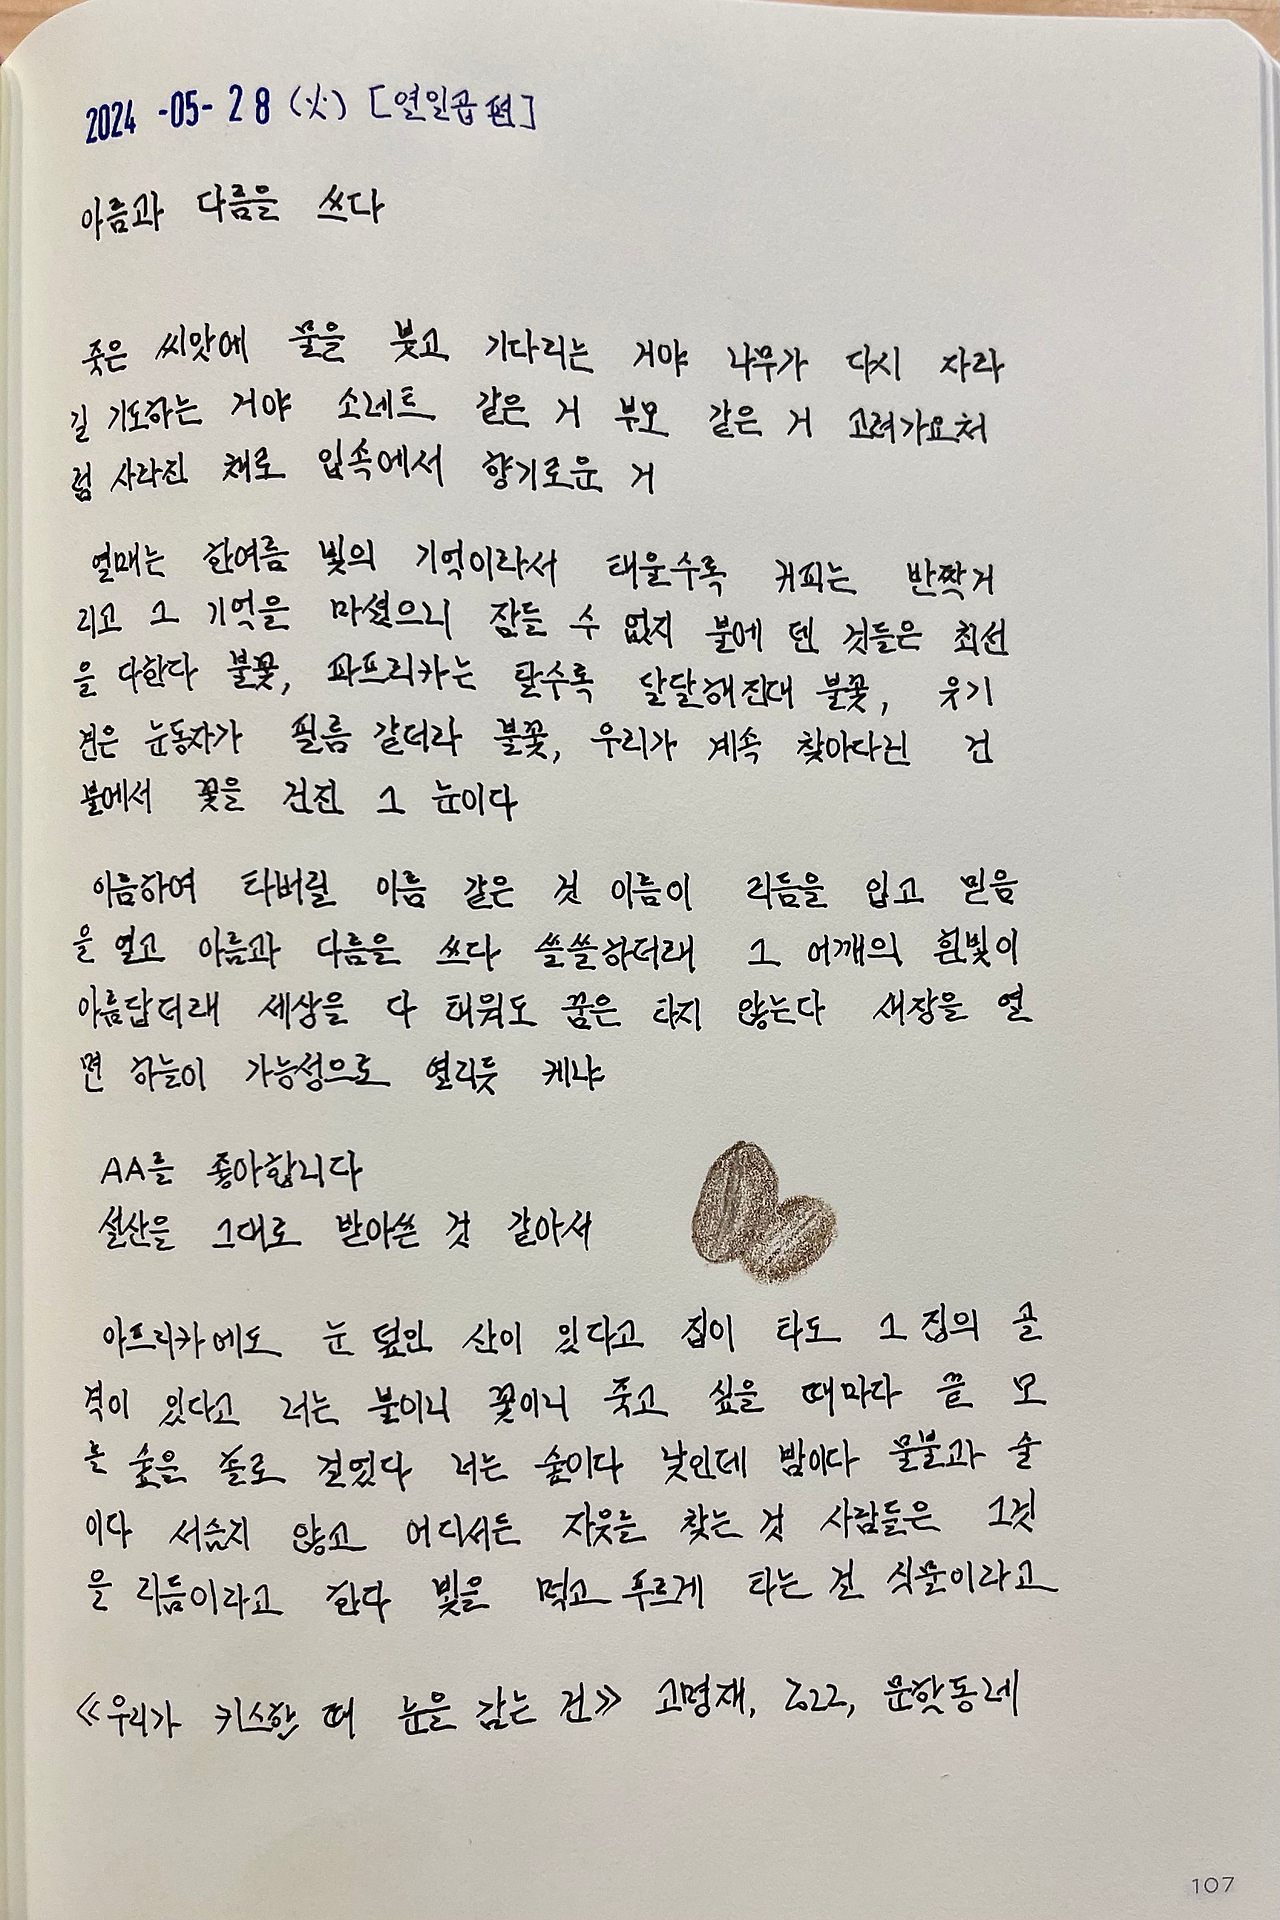 2024 -05- 28 (火) [열일곱 편]
아름과 다름을 쓰다
죽은 씨앗에 물을 붓고 기다리는 거야 나무가 다시 자라
길 기도하는 거야 소네트 같은 거 부모 같은 거 고려가요처
럼 사라진 채로 입속에서 향기로운 거
열매는 한여름 빛의 기억이라서 태울수록 커피는 반짝거
리고 그 기억을 마셨으니 잠들 수 없지 불에 덴 것들은 최선
을 다한다 불꽃, 파프리카는 탈수록 달달해진대 불꽃, 웃기
젼은 눈동자가 필름 같더라 불꽃, 우리가 계속 찾아다닌 건
불에서 꽃을 건진 그 눈이다
이름하여 타버릴 이름 같은 것 이름이 리듬을 입고 믿음
을 열고 아름과 다름을 쓰다 쓸쓸하더래 그 어깨의 흰빛이
아름답더래 세상을 다 태워도 꿈은 타지 않는다 새장을 열
면 하늘이 가능성으로 열리듯 케냐
AA를 좋아합니다
설산을 그대로 받아쓴 것 같아서
아프리카에도 눈 덮인 산이 있다고 집이 타도 그 집의 골
격이 있다고 너는 불이니 꽃이니 죽고 싶을 때마다 끝 모
를 숲을 홀로 걸었다 너는 숲이다 낮인데 밤이다 물불과 술
이다 서슴지 않고 어디서든 자웃를 찾는 것 사람들은 그것
을 리듬이라고 한다 빛을 먹고 푸르게 타는 건 식물이라고
《우리가 키스할 때 눈을 감는 건》 고명재, 2022, 문학동네
107